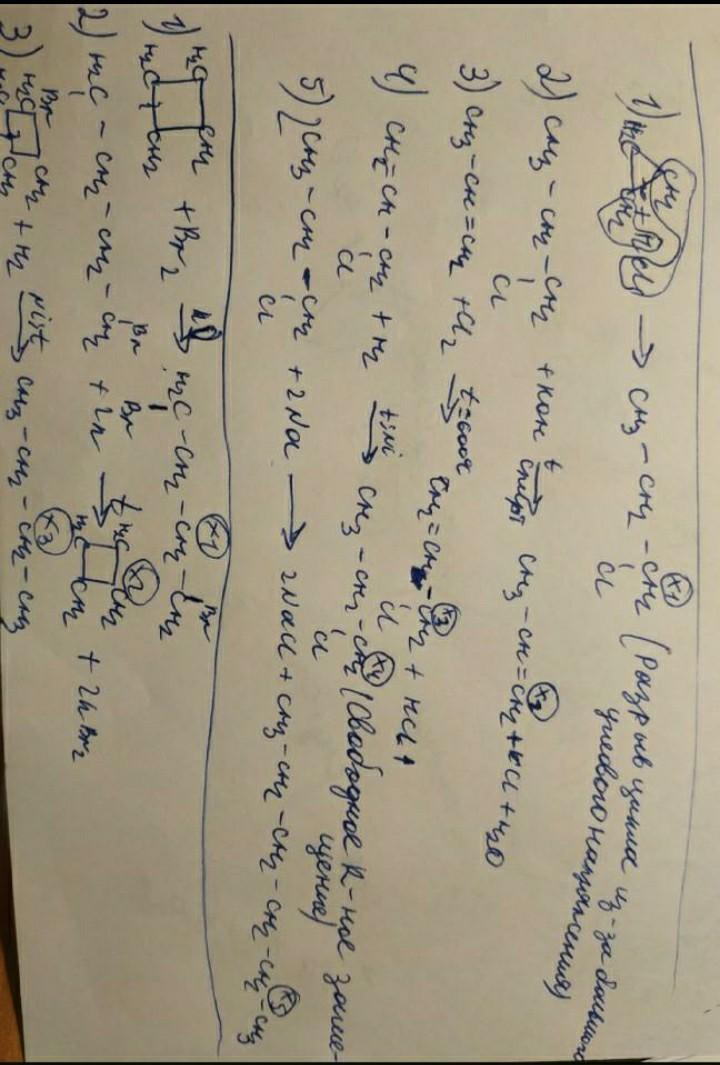 1) H2C CH2 CH2 + HCl → CH3 - CH2 - CH2 Cl X1 (Разрыв цикла из-за большого
углового напряжения)
2) CH3 - CH2 - CH2 Cl + KOH t спирт → CH3 - CH = CH2 X2 + KCl + H2O
3) CH3 - CH = CH2 + Cl2 → CH2 = CH - CH2 Cl X3 + HCl
4) CH2 = CH - CH2 Cl + H2 t; Ni → CH3 - CH2 - CH2 Cl X4 (Свободное R-ное заме-
щение)
5) 2CH3 - CH2 - CH2 Cl + 2Na → 2NaCl + CH3 - CH2 - CH2 - CH2 - CH2 - CH3 X5
1) H2C CH2 H2C CH2 + Br2 → H2C - CH2 - CH2 - CH2 Br X1
2) H2C - CH2 - CH2 - CH2 Br Br + Zn t → H2C CH2 H2C CH2 X2 + ZnBr2
3) H2C CH2 H2C CH2 + H2 Ni; t → CH3 - CH2 - CH2 - CH3 X3